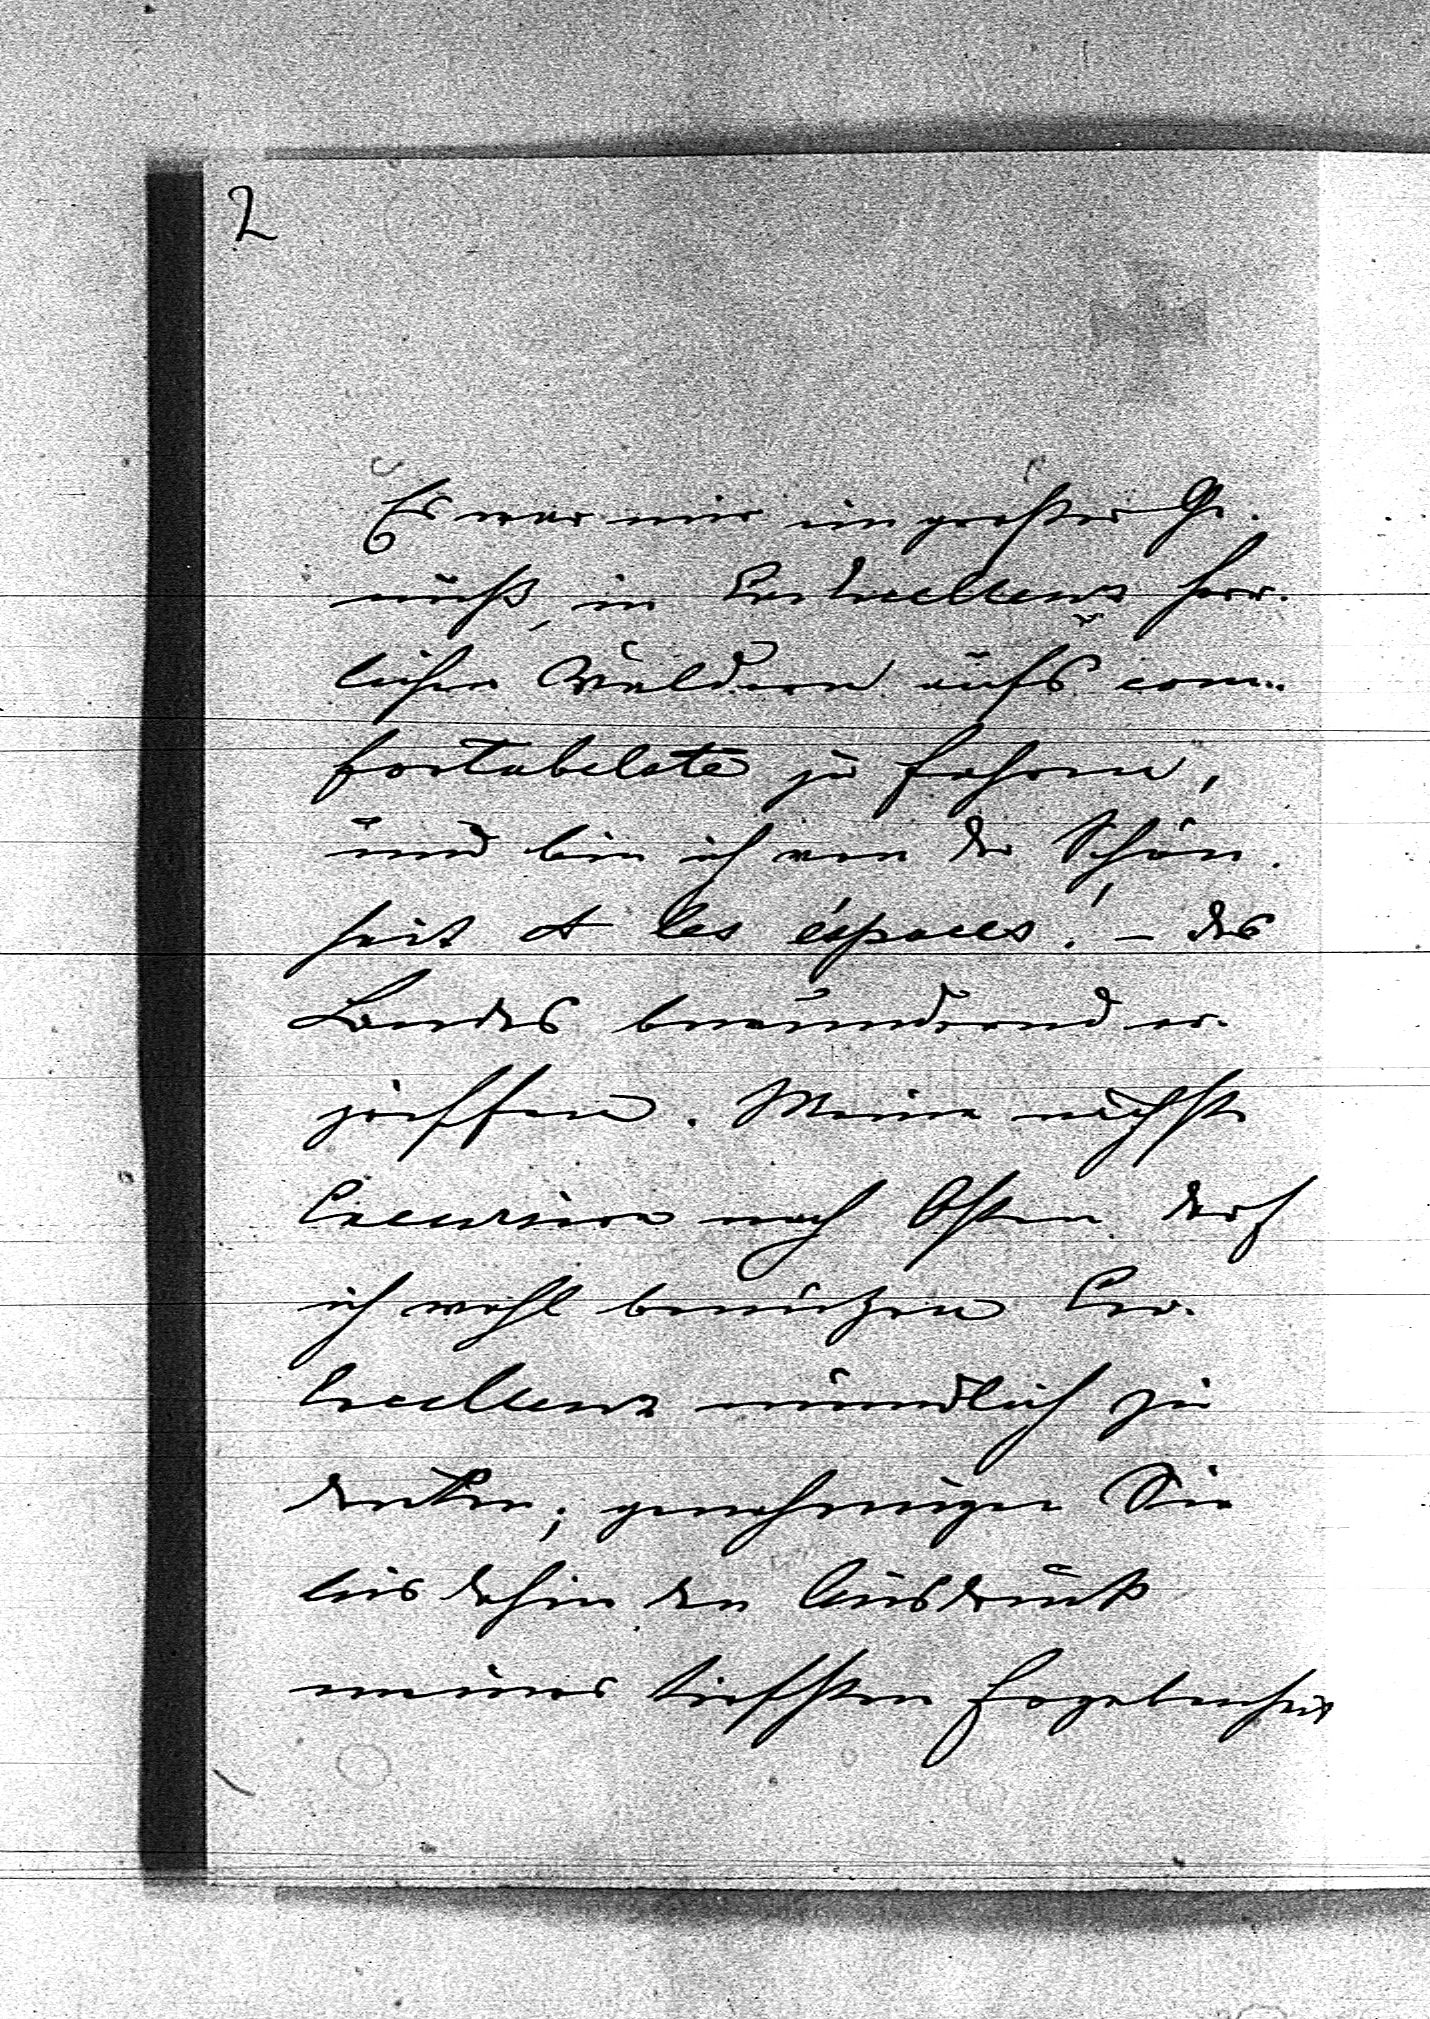 2
Es war mir ein großer Ge-
nuß, in Ew Excellenz herr-
lichen Wäldern aufs com-
fortabelste zu fahren,
und bin ich von der Schön-
heit & les éspaces! – des
Landes bewundernd er-
griffen. Meine nächste
Excursion nach Osten darf
ich wohl benützen Ew.
Excellenz mündlich zu
danken; genehmigen Sie
bis dahin den Ausdruck
meiner tiefsten Ergebenheit